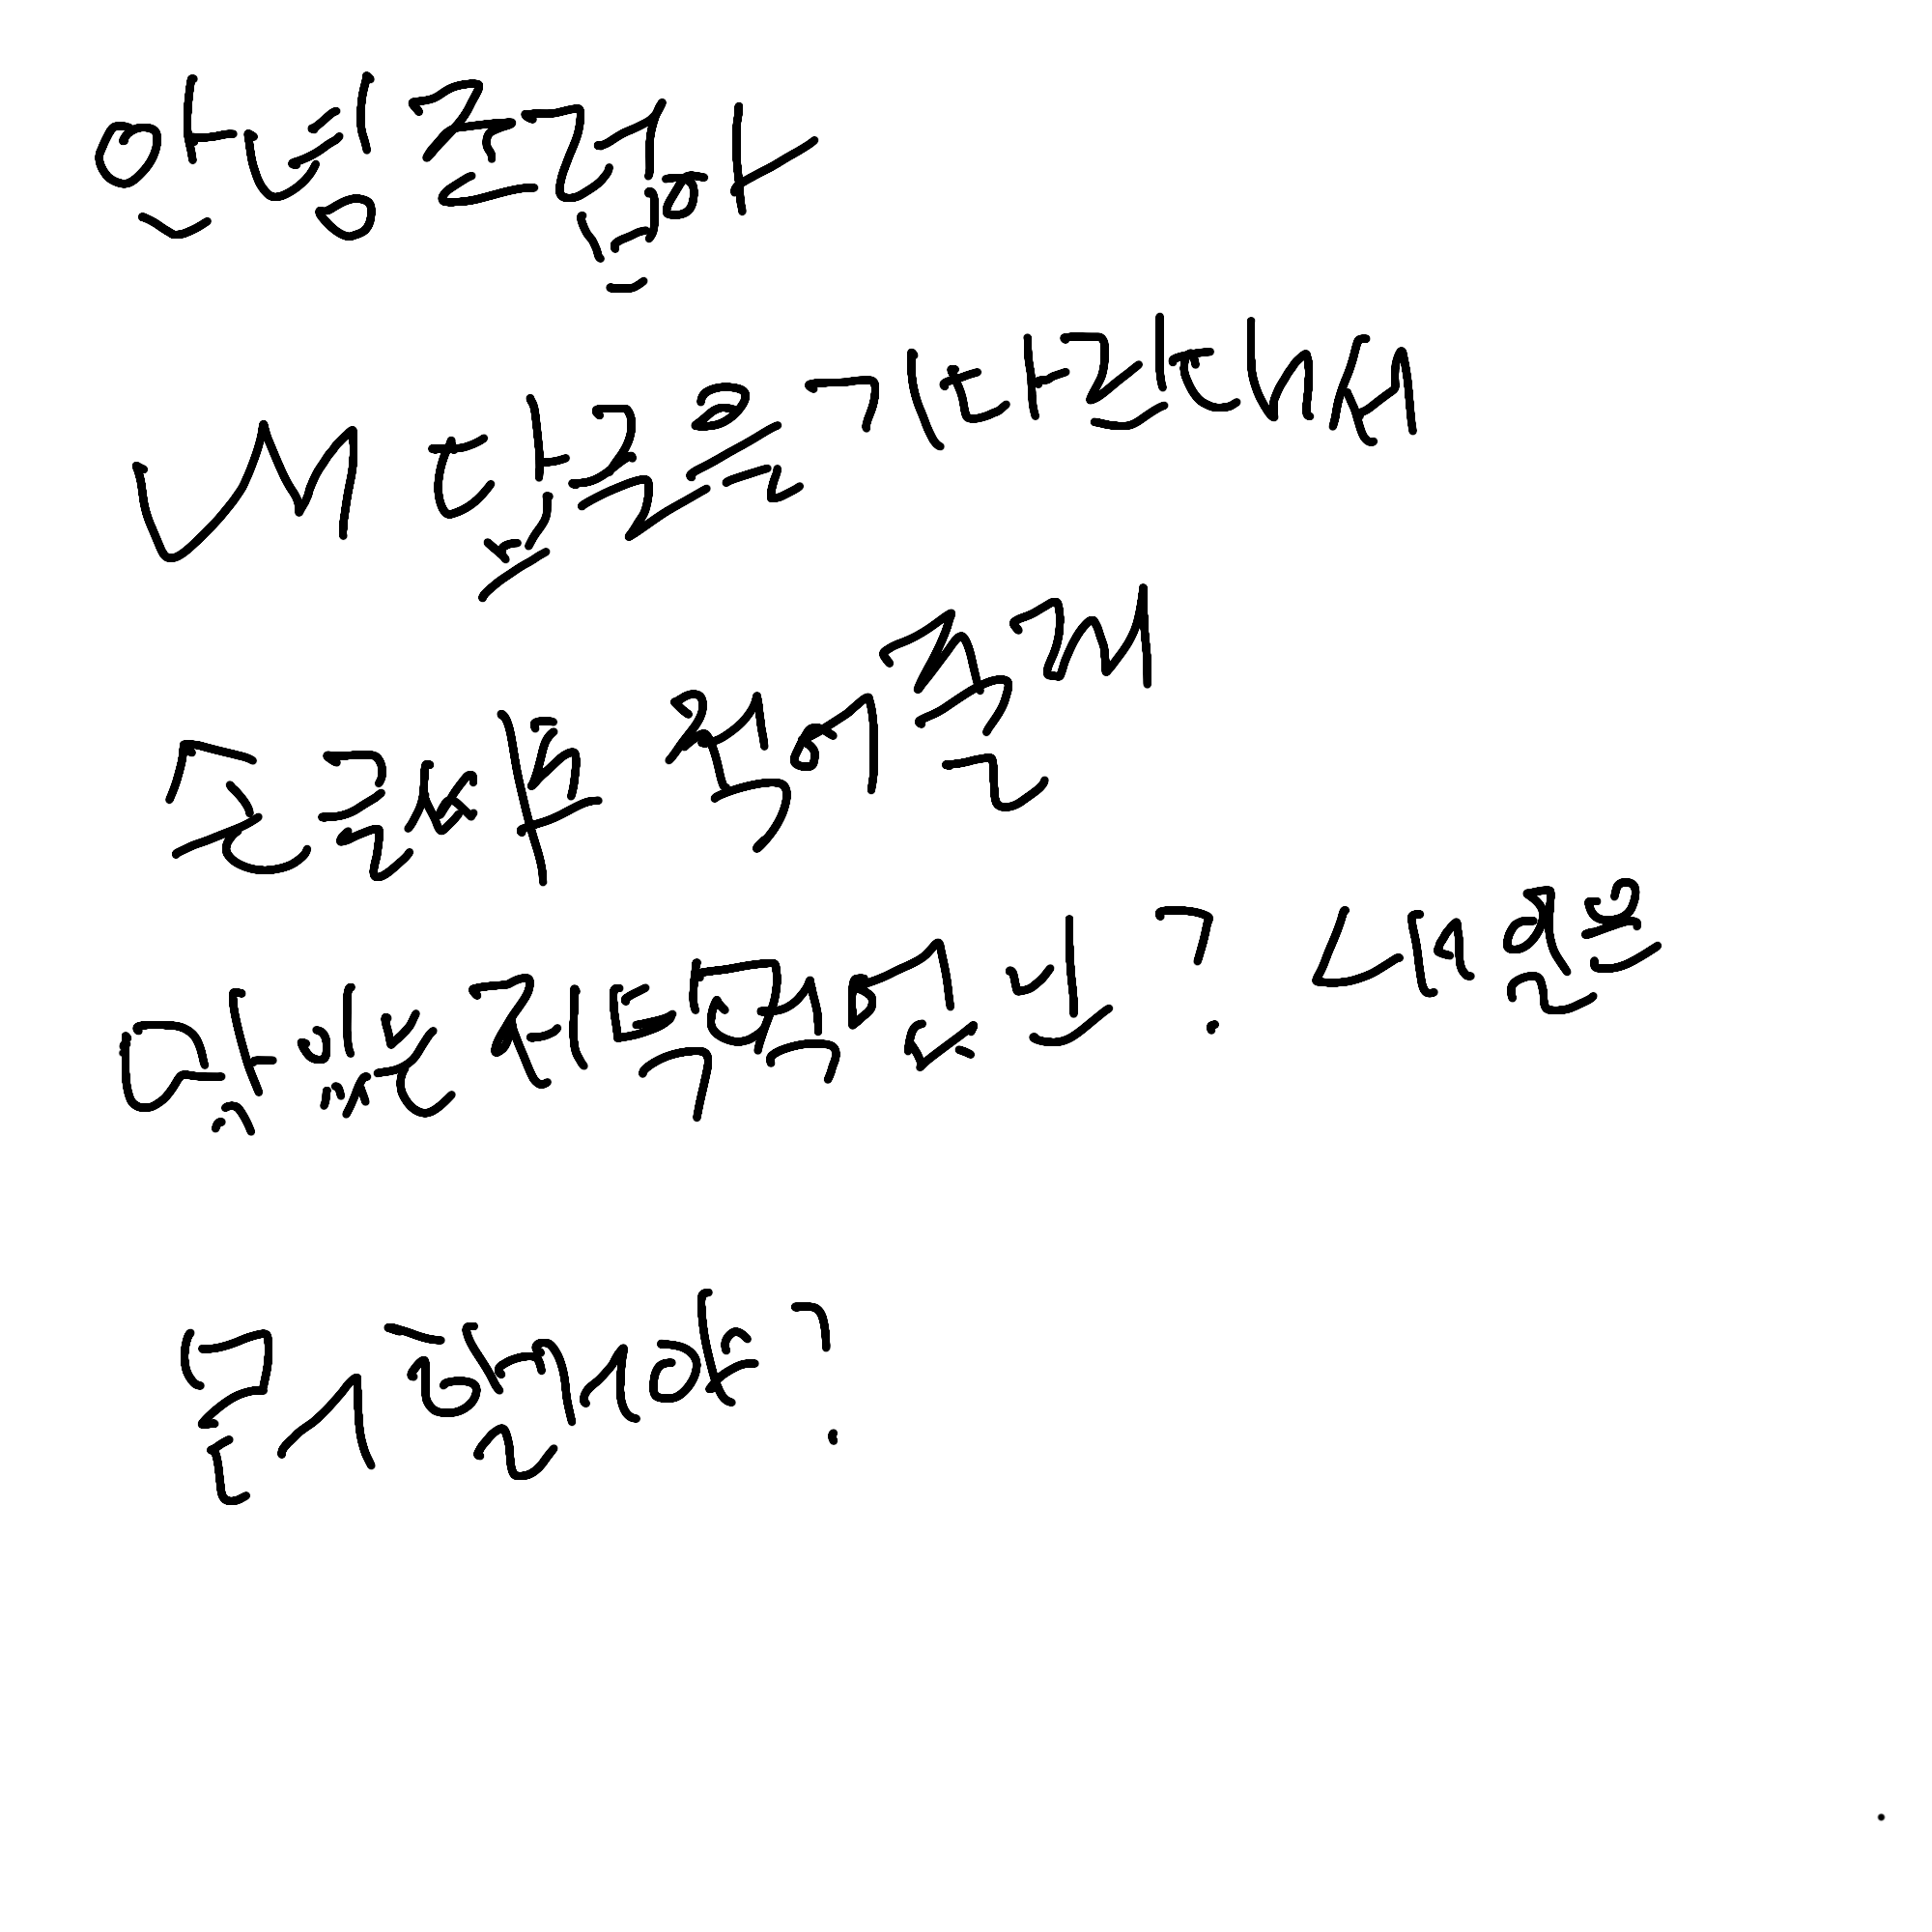 안녕 졸렬아
내 답글을 기다린대서
손글씨로 적어줄게
맛있는 저녁 먹었니? 내일은
뭐 할거야?